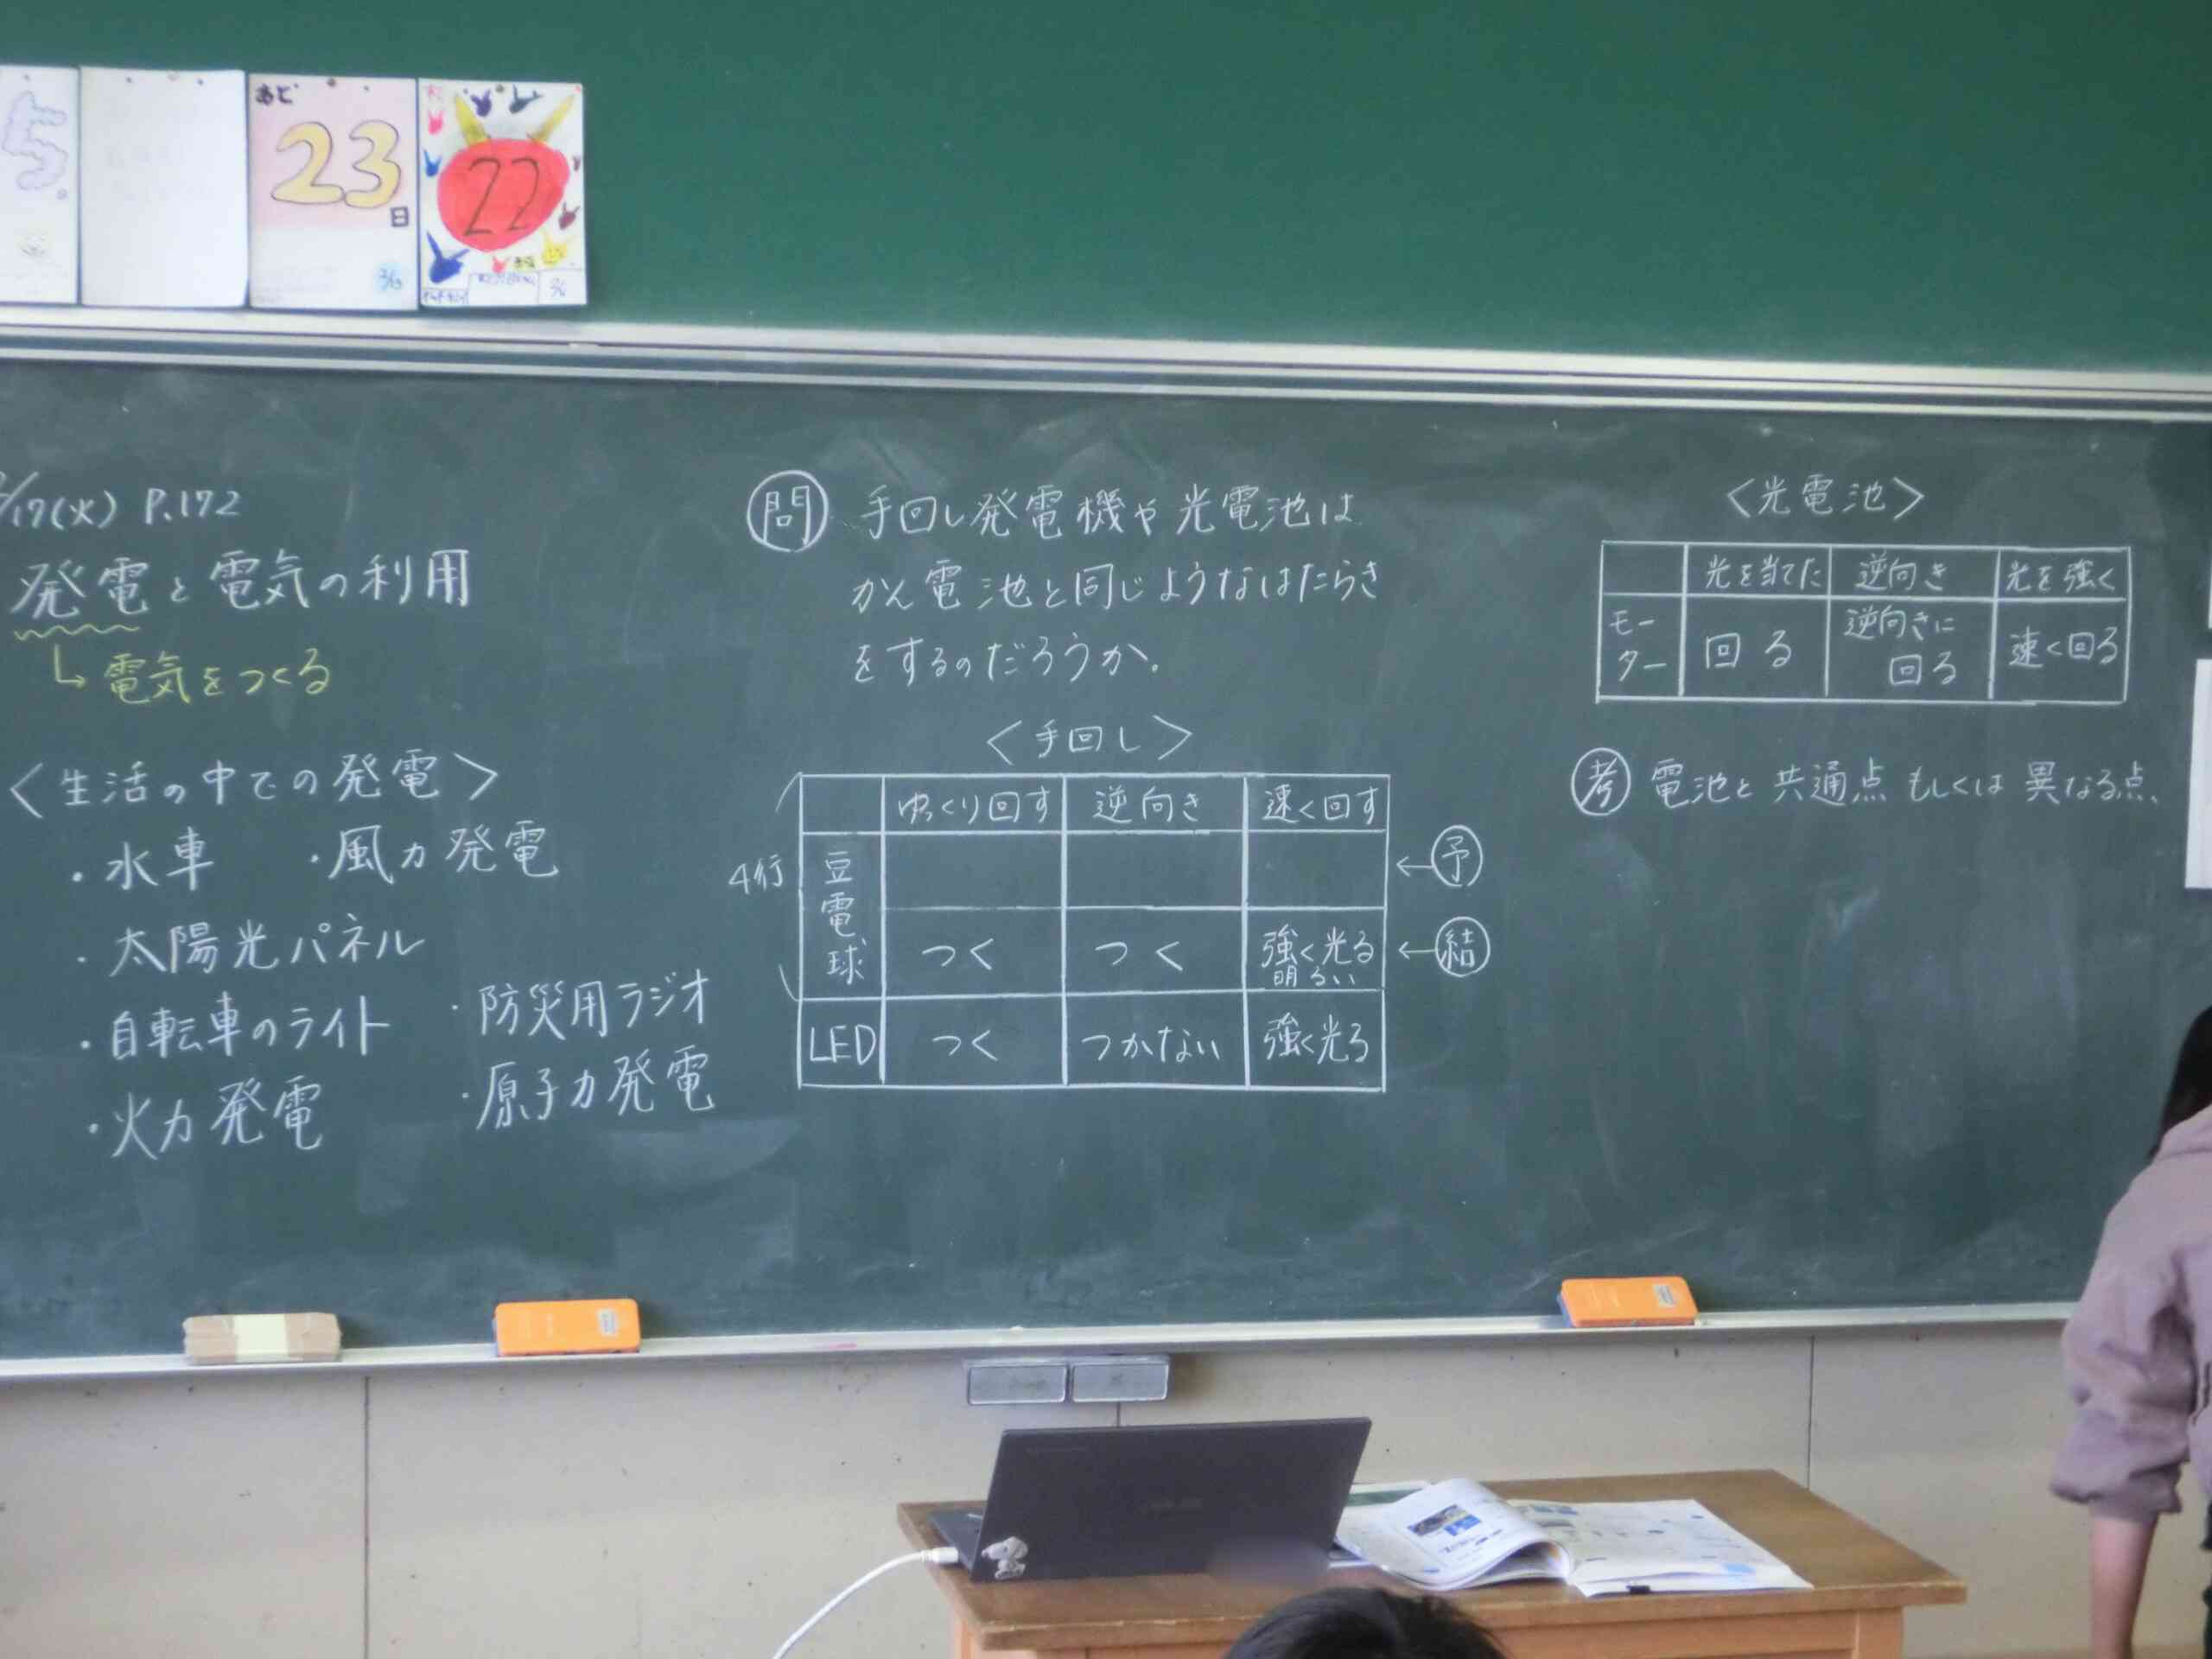 5
あと
23
日
22
/17(火) P.172
発電と電気の利用
↳電気をつくる
〈生活の中での発電〉
・水車 ・風力発電
・太陽光パネル
・自転車のライト ・防災用ラジオ
・火力発電 ・原子力発電
問 手回し発電機や光電池は
かん電池と同じようなはたらき
をするのだろうか。
〈手回し〉
ゆっくり回す 逆向き 速く回す
4行 豆電球 ←予
つく つく 強く光る 明るい ←結
LED つく つかない 強く光る
〈光電池〉
光を当てた 逆向き 光を強く
モーター 回る 逆向きに回る 速く回る
考 電池と共通点もしくは異なる点、